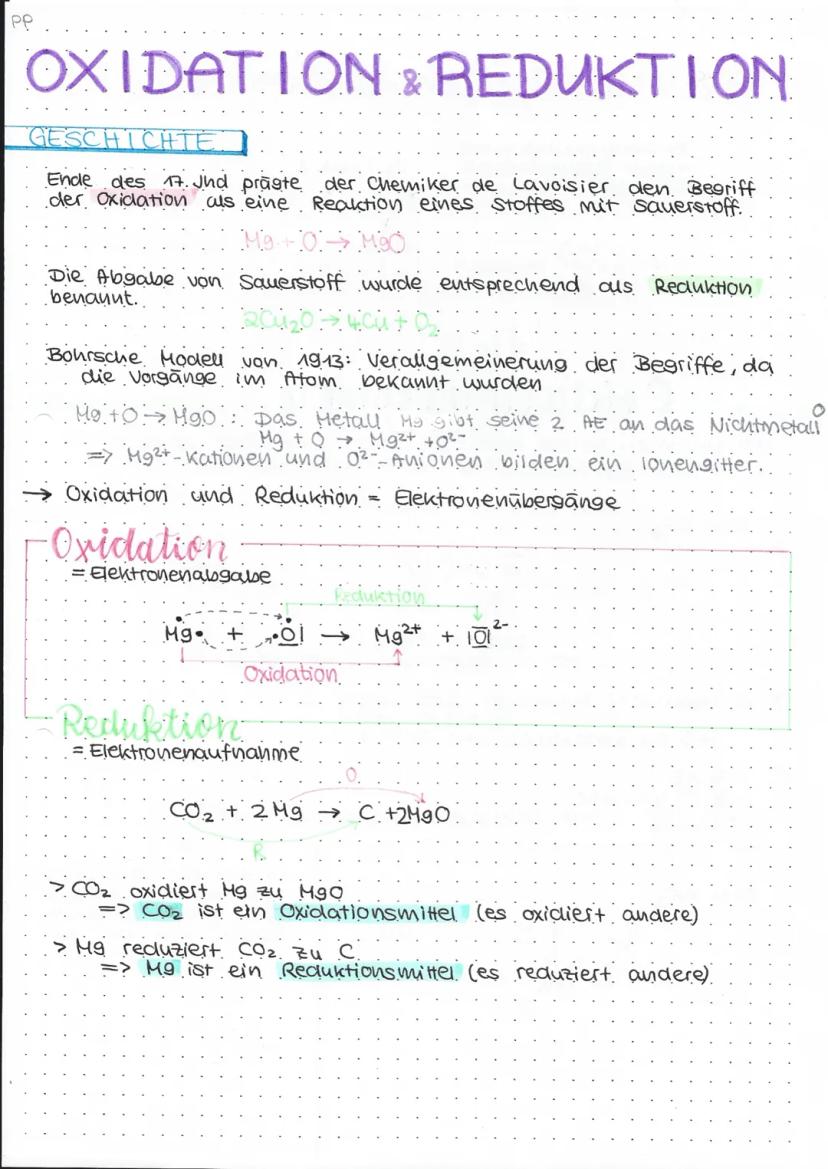 PP
OXIDATION & REDUKTION
GESCHICHTE
Ende des 17. Jhd prägte der Chemiker de Lavoisier den Begriff
der Oxidation als eine Reaktion eines Stoffes mit Sauerstoff.
Mg + O → MgO
Die Abgabe von Sauerstoff wurde entsprechend als Reduktion
benannt.
2Cu₂O → 4Cu + O₂
Bohrsche Modell von 1913: Verallgemeinerung der Begriffe, da
die Vorgänge im Atom bekannt wurden
Mg + O → MgO : Das Metall Mg gibt seine 2 AE an das Nichtmetall O
Mg + O → Mg²⁺ + O²⁻
=> Mg²⁺-Kationen und O²⁻-Anionen bilden ein Ionengitter.
→ Oxidation und Reduktion = Elektronenübergänge
Oxidation
= Elektronenabgabe
Reduktion
Mg• + •O| → Mg²⁺ + |O|²⁻
Oxidation
Reduktion
= Elektronenaufnahme
O
CO₂ + 2Mg → C + 2MgO
R
> CO₂ oxidiert Mg zu MgO
=> CO₂ ist ein Oxidationsmittel (es oxidiert andere)
> Mg reduziert CO₂ zu C
=> Mg ist ein Reduktionsmittel (es reduziert andere)